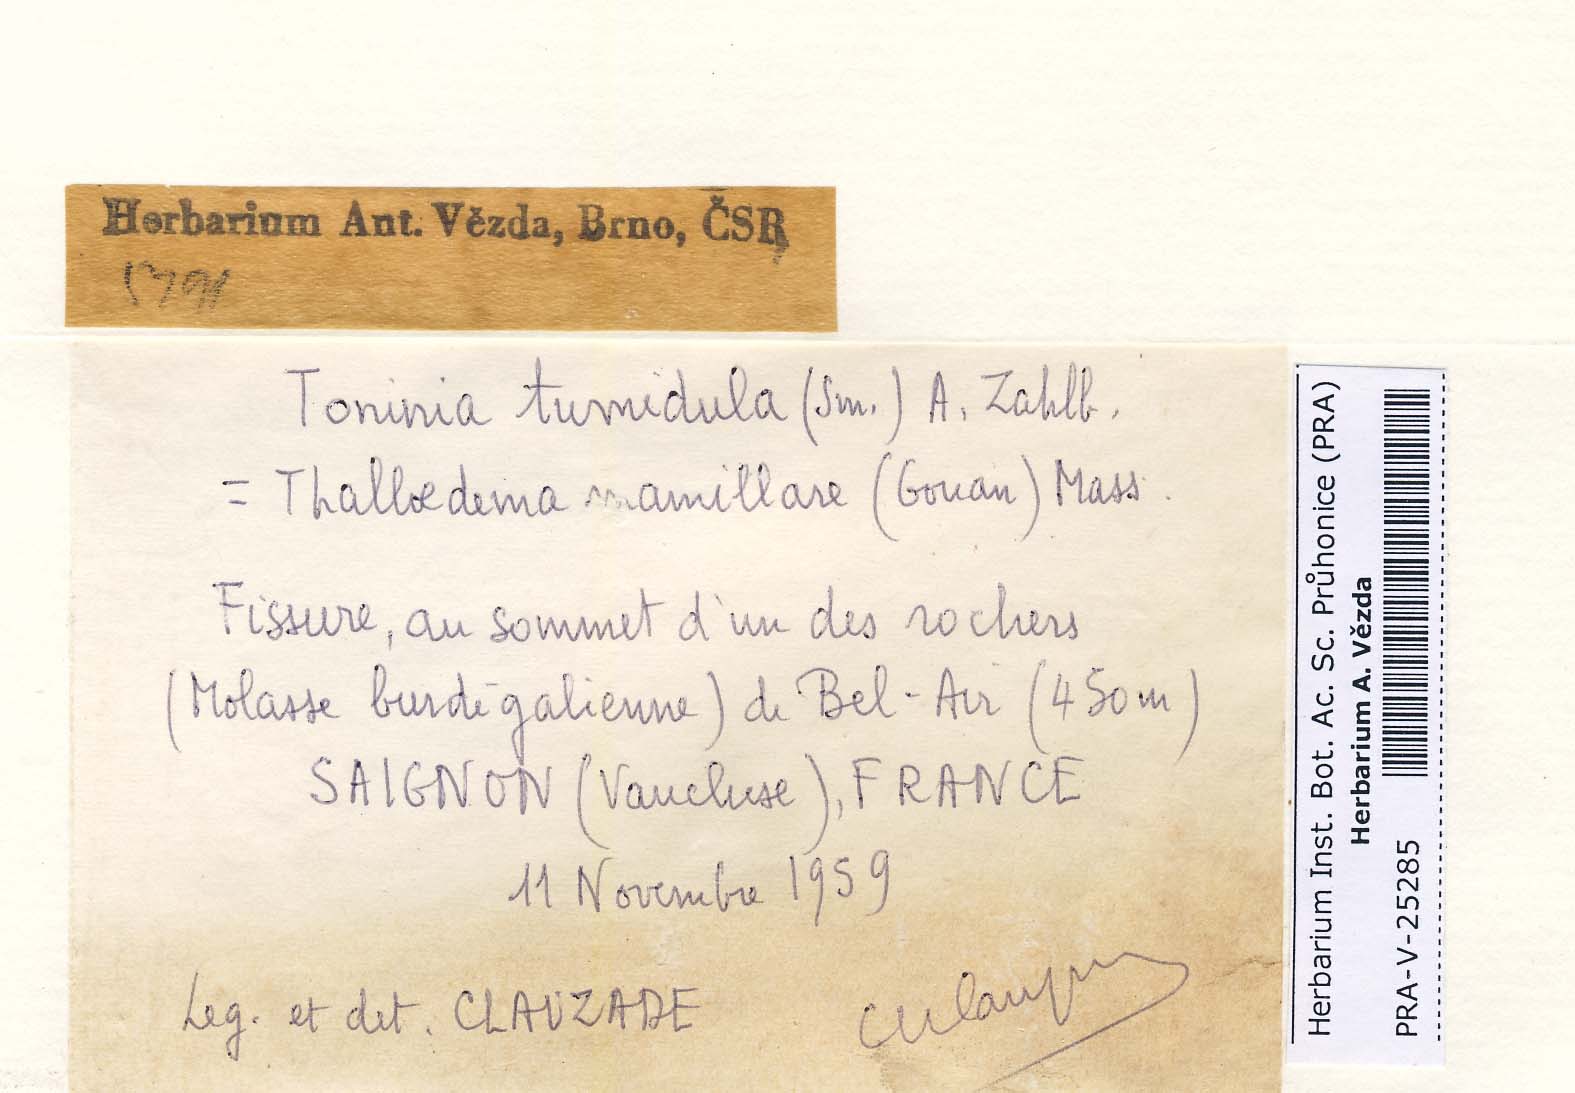 Herbarium Ant. Vězda, Brno, ČSR,
Toninia tumidula (Sm.) A. Zahlb.
= Thalloedema mamillare (Gouan) Mass.
Fissure, au sommet d'un des rochers
(Molasse burdigalienne) de Bel-Air (450m)
SAIGNON (Vaucluse), FRANCE
11 Novembre 1959
Leg. et det. CLAUZADE
Herbarium Inst. Bot. Ac. Sc. Průhonice (PRA)
Herbarium A. Vězda
PRA-V-25285